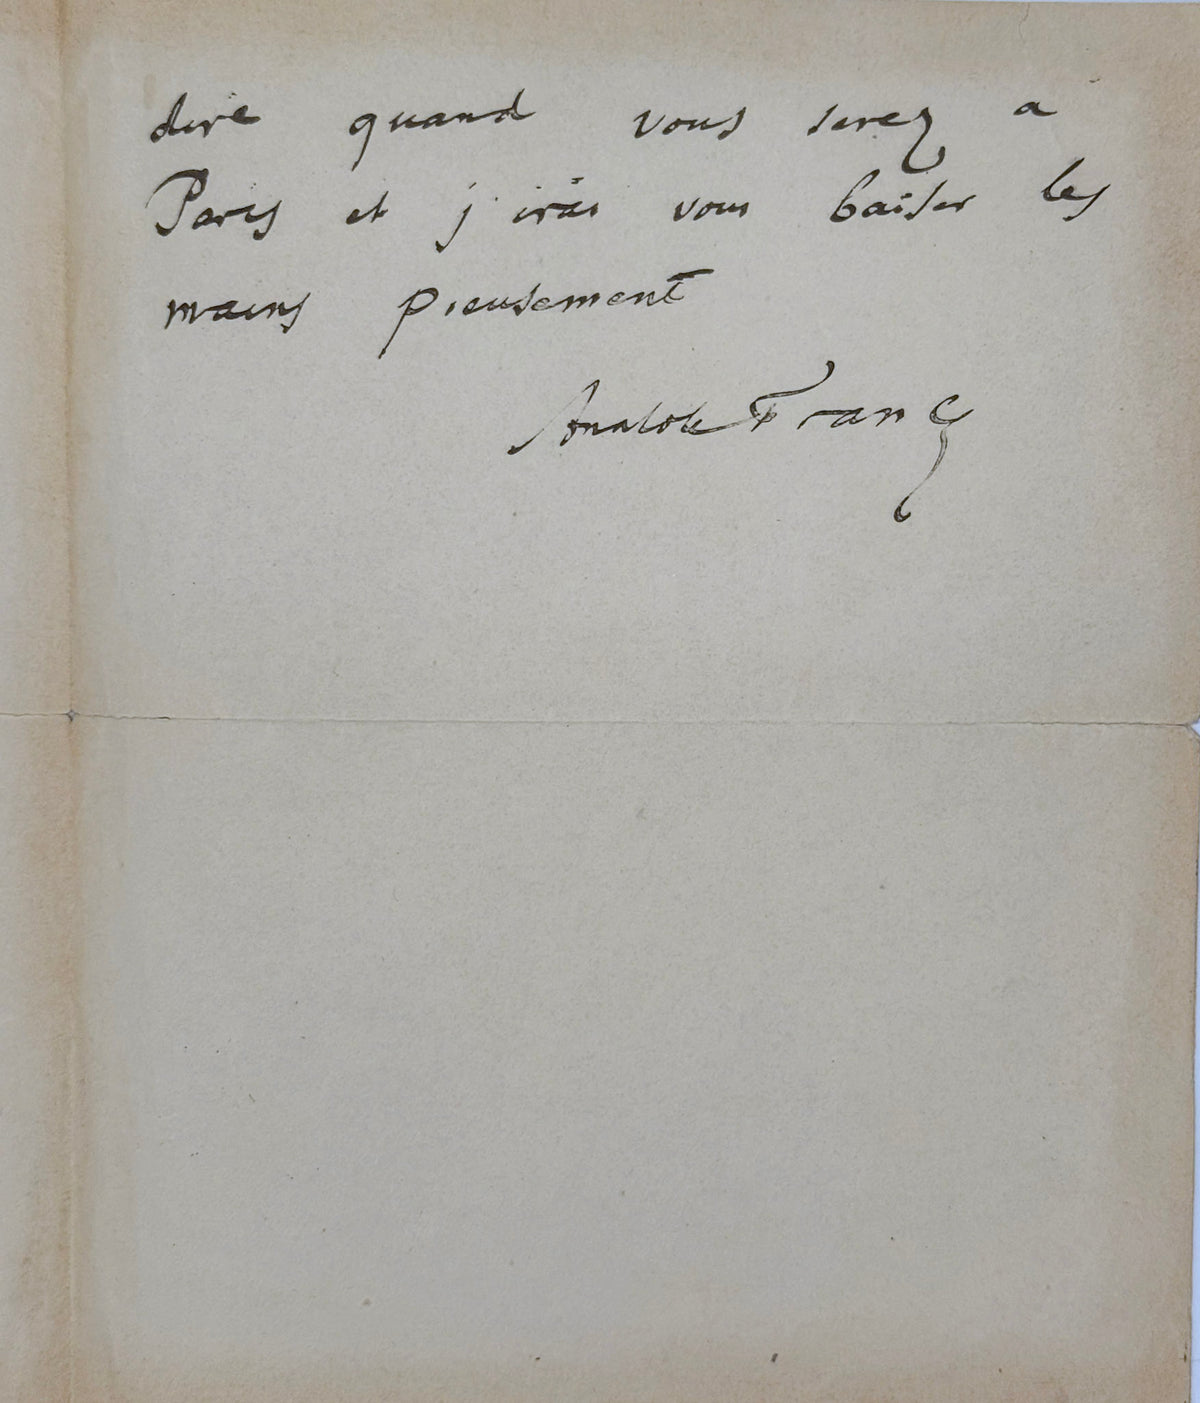 dire quand vous serez a
Paris et j'irai vous baiser les
mains pieusement
Anatole France